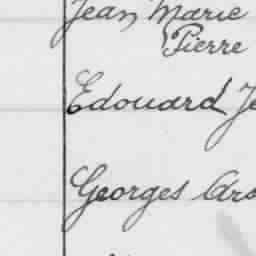 Jean Marie
Pierre
Edouard
Georges